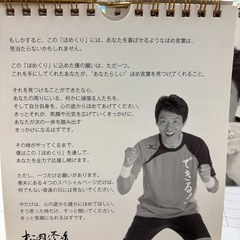 もしかすると、この「ほめくり」には、あなたを喜ばせるようなほめ言葉は、
見当たらないかもしれません。
この「ほめくり」に込めた僕の願いは、ただ一つ。
これを手にしてくれたあなたが、“あなたらしい”ほめ言葉を見つけてくれること。
それを見つけることができたなら、
あなたの周りにいる、何かに頑張る人たちを、
そして自分自身を、心の底からほめてあげてください。
きっとそれが、笑顔や元気を広げていくきっかけに、
あなたが次の一歩を踏み出す
きっかけになるはずです。
その時がやってくるまで、
僕はこの「ほめくり」を通して、
あなたを全力で応援し続けます。
ただし、一つだけお願いがあります。
巻末にある4つのスペシャルページだけは、
何でもない普通の日には見ないでください。
今だけは、心の底から誰かにほめてほしい。
そう思った時だけ、そっと開いてください。
きっと笑顔になれるはずです。
松岡修造
できる!